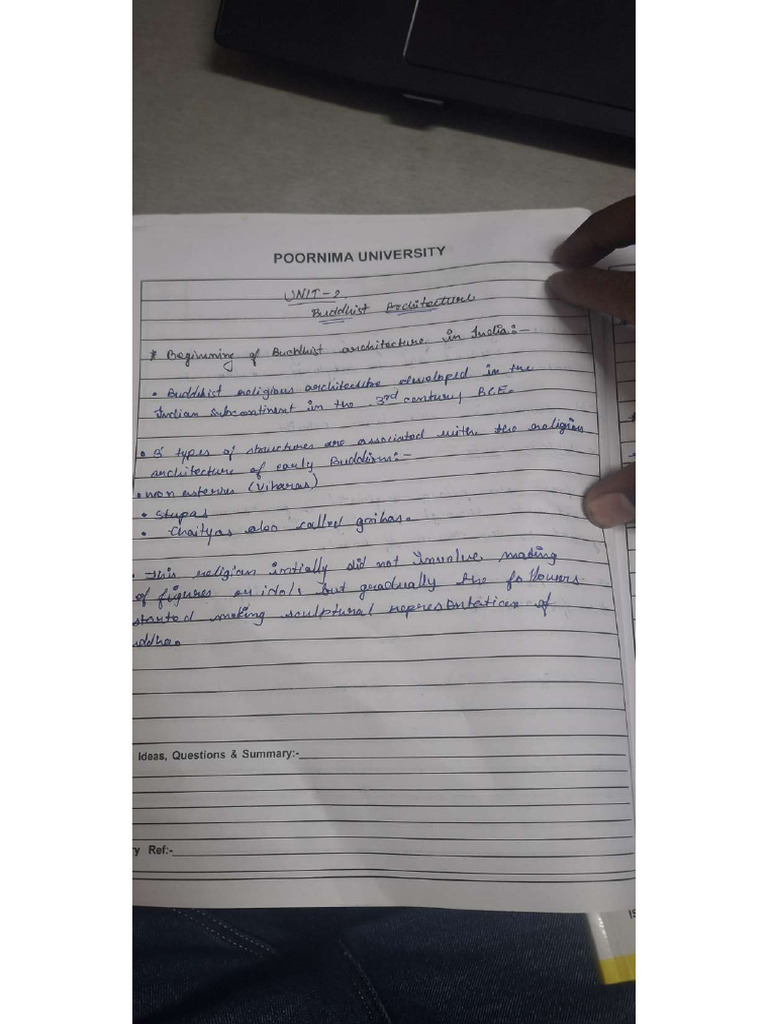 POORNIMA UNIVERSITY
UNIT-2
Buddhist Architecture
* Beginning of Buddhist architecture in India:-
• Buddhist religious architecture developed in the
Indian subcontinent in the 3rd century BCE.
• 3 types of structures are associated with the religious
architecture of early Buddism:-
• monasteries (Viharas)
• Stupas
• Chaityas also called grihas.
• This religion initially did not involve making
of figures or idols but gradually the followers
started making sculptural representation of
ddha.
Ideas, Questions & Summary:-
ry Ref:-